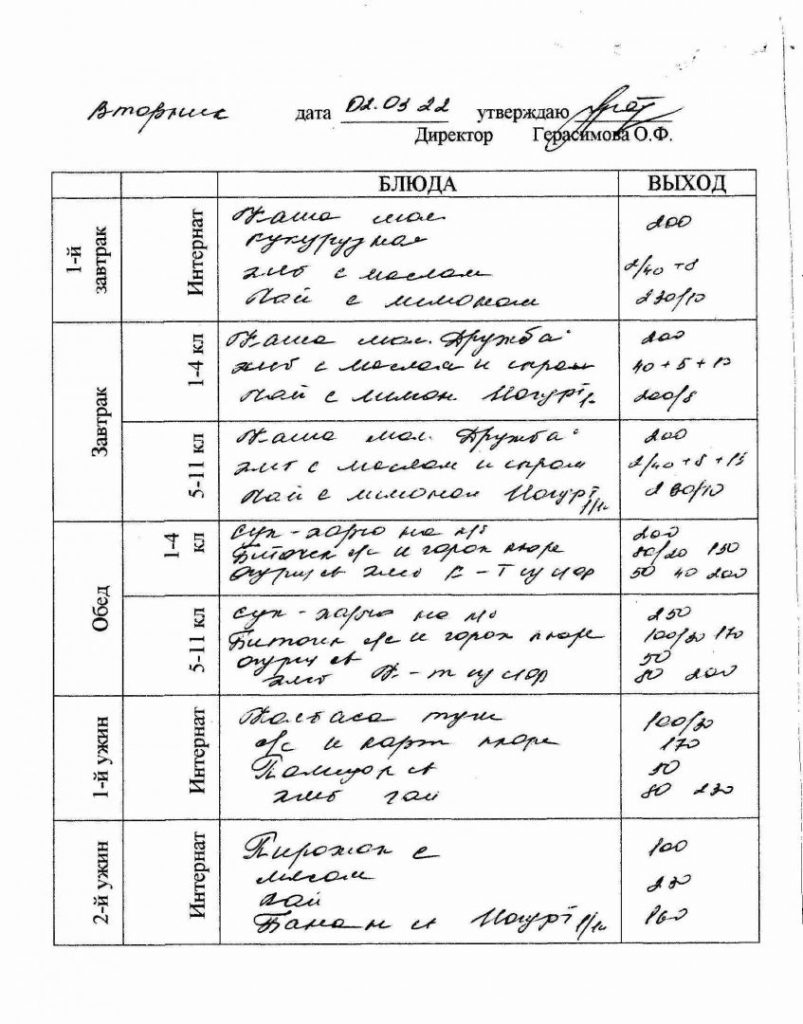 Вторник дата 02.03 22 утверждаю
Директор Герасимова О.Ф.
БЛЮДА ВЫХОД
1-й завтрак Интернат
Каша мол 200
кукурузная
хлеб с маслом 2/40 +8
Чай с лимоном 230/10
Завтрак
1-4 кл
Каша мол. Дружба" 200
хлеб с маслом и сыром 40 + 5 + 13
Чай с лимон. Йогурт 200/8
5-11 кл
Каша мол. Дружба" 200
хлеб с маслом и сыром 2/40 + 8 + 15
Чай с лимоном Йогурт 1/1 230/10
Обед
1-4 кл
суп-харчо на м/б 200
Биточек с/с и горох пюре 80/20 150
огурец св хлеб К-т из с/ф 50 40 200
5-11 кл
суп-харчо на м/б 250
Биточек с/с и горох пюре 100/30 170
огурец св 50
хлеб К-т из с/ф 80 200
1-й ужин Интернат
Колбаса туш 100/30
с/с и карт пюре 170
Помидор св 50
хлеб чай 80 230
2-й ужин Интернат
Пирожок с 100
мясом
чай 230
Банан св Йогурт 1/1 160